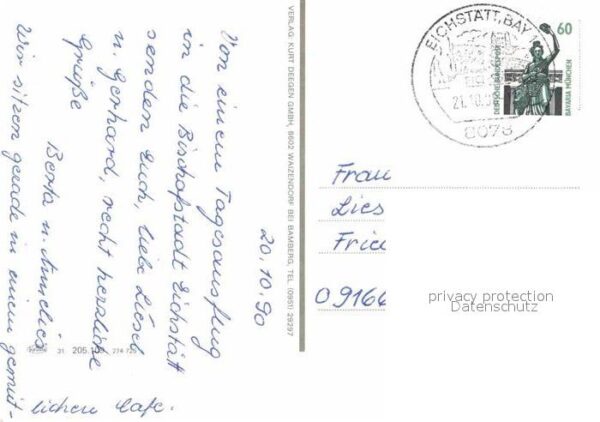 20.10.90
Von einem Tagesausflug
in die Bischofstadt Eichstätt
senden Euch, liebe Liesel
u. Gerhard, recht herzliche
Grüße
Berta u. Annelies
Wir sitzen gerade in einem gemüt-
lichen Cafe.
VERLAG: KURT DEEGEN GMBH, 8602 WAIZENDORF BEI BAMBERG, TEL. (0951) 29297
31 205.103 274 725
EICHSTÄTT, BAY 1
8078
60
DEUTSCHE BUNDESPOST
BAVARIA MÜNCHEN
Frau
Lies
Frie
0 9166
privacy protection
Datenschutz